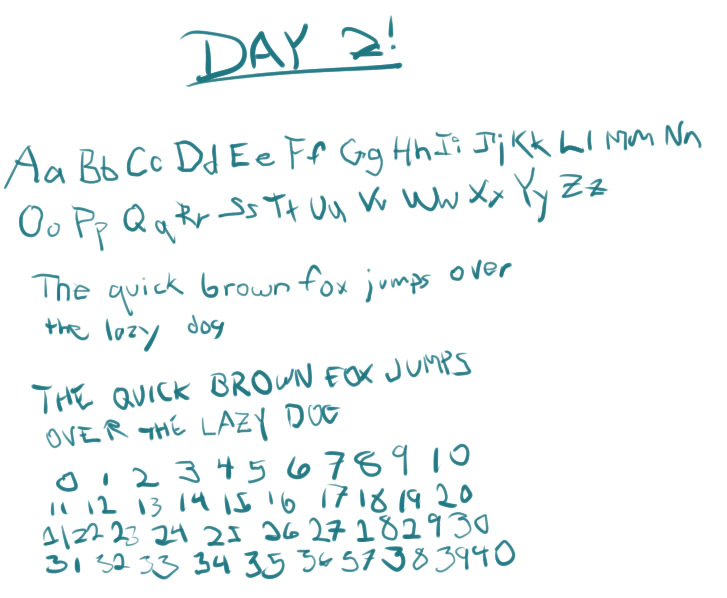 DAY 2!
Aa Bb Cc Dd Ee Ff Gg Hh Ii Jj Kk Ll Mm Nn
Oo Pp Qq Rr Ss Tt Uu Vv Ww Xx Yy Zz
The quick brown fox jumps over
the lazy dog
THE QUICK BROWN FOX JUMPS
OVER THE LAZY DOG
0 1 2 3 4 5 6 7 8 9 10
11 12 13 14 15 16 17 18 19 20
21 22 23 24 25 26 27 182930
31 32 33 34 35 36 57 38 39 40